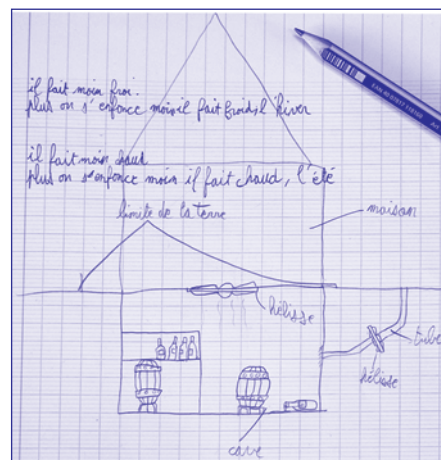 il fait moin froi.
plus on s'enfonce moin il fait froid, l'hiver
il fait moin chaud
plus on s'enfonce moin il fait chaud, l'été
limite de la terre
maison
hélisse
tube
hélisse
cave